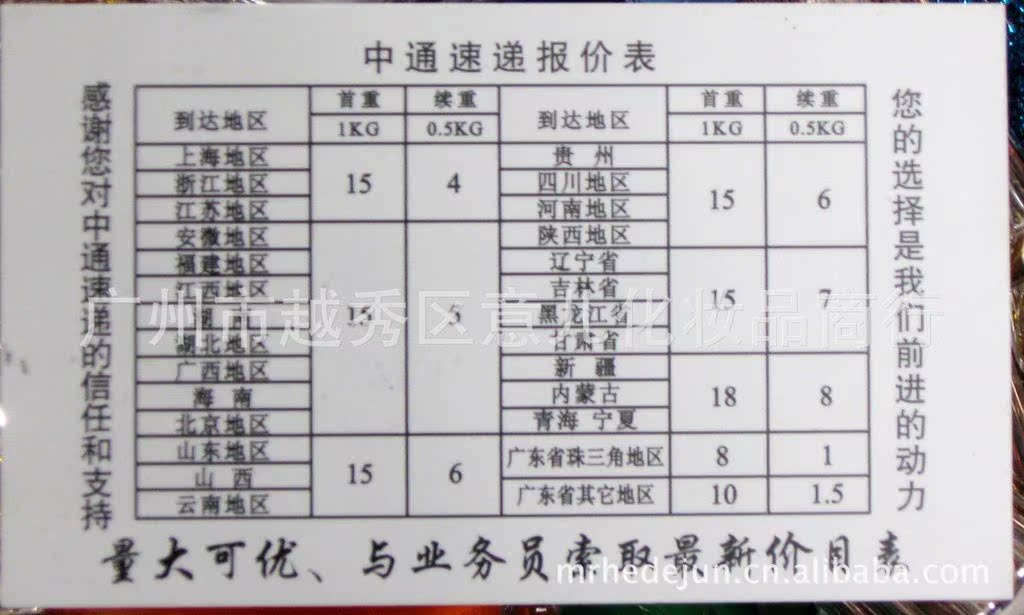 中通速递报价表
感谢您对中通速递的信任和支持
到达地区 首重 续重 到达地区 首重 续重
1KG 0.5KG 1KG 0.5KG
上海地区 贵 州
浙江地区 15 4 四川地区 15 6
江苏地区 河南地区
安徽地区 陕西地区
福建地区 辽宁省
江西地区 吉林省 15 7
湖 15 5 黑龙江省
湖北地区 甘肃省
广西地区 新 疆
海 南 内蒙古 18 8
北京地区 青海 宁夏
山东地区 广东省珠三角地区 8 1
山 西 15 6
云南地区 广东省其它地区 10 1.5
您的选择是我们前进的动力
量大可优、与业务员索取最新价目表
广州市越秀区意儿化妆品商行
mrhedejun.cn.alibaba.com